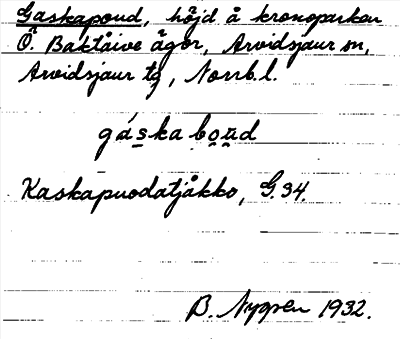 Gaskapoud, höjd å kronoparken
Ö. Baktåive ägor, Arvidsjaur sn,
Arvidsjaur tg, Norrb. l.
gáska boud
Kaskapuodatjåkko, G. 34.
B. Nygren 1932.